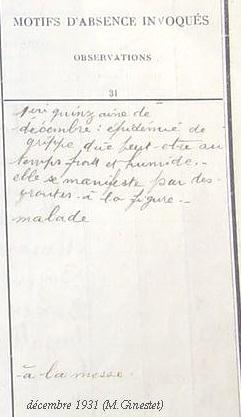 MOTIFS D'ABSENCE INVOQUÉS
OBSERVATIONS
31
1ère quinzaine de
décembre : épidémie de
grippe due peut-être au
temps froid et humide. -
elle se manifeste par des
croûtes à la figure -
malade
- à la messe -
décembre 1931 (M. Ginestet)